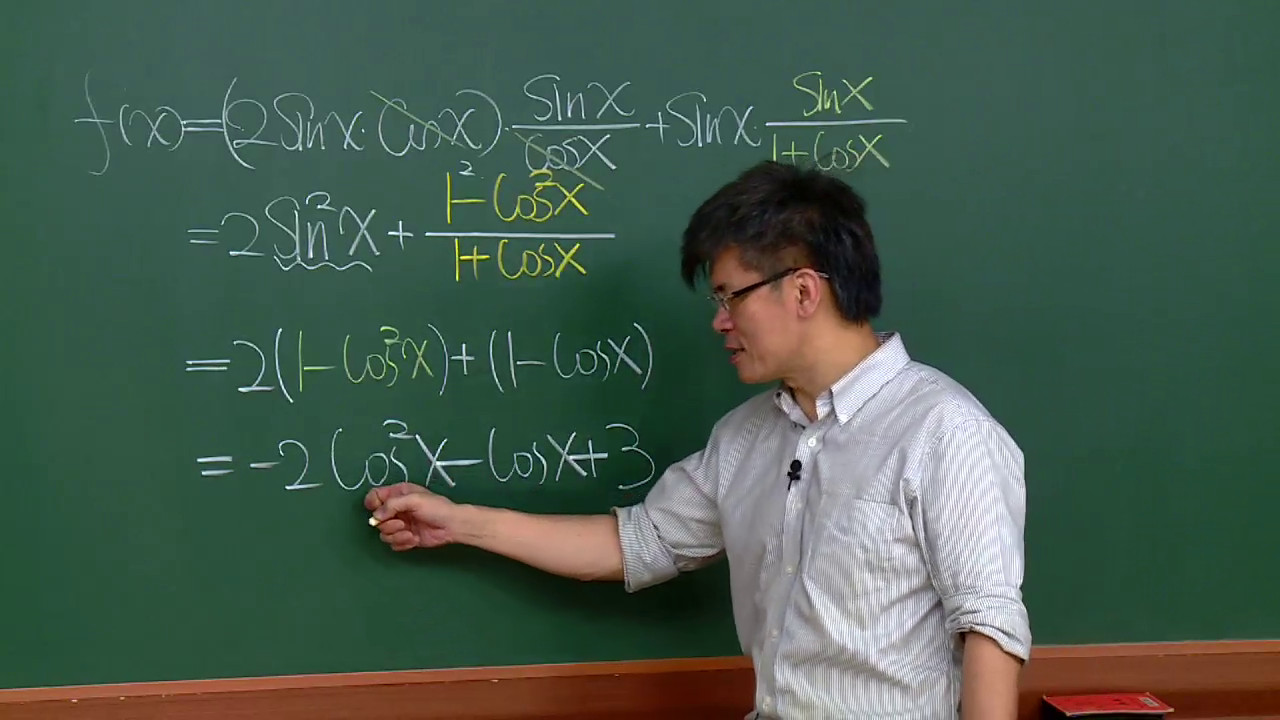 f(x)=(2Sinx·Cosx)·Sinx/Cosx+Sinx·Sinx/1+Cosx
=2Sin²x+1²-Cos²x/1+Cosx
=2(1-Cos²x)+(1-Cosx)
=-2Cos²x-Cosx+3